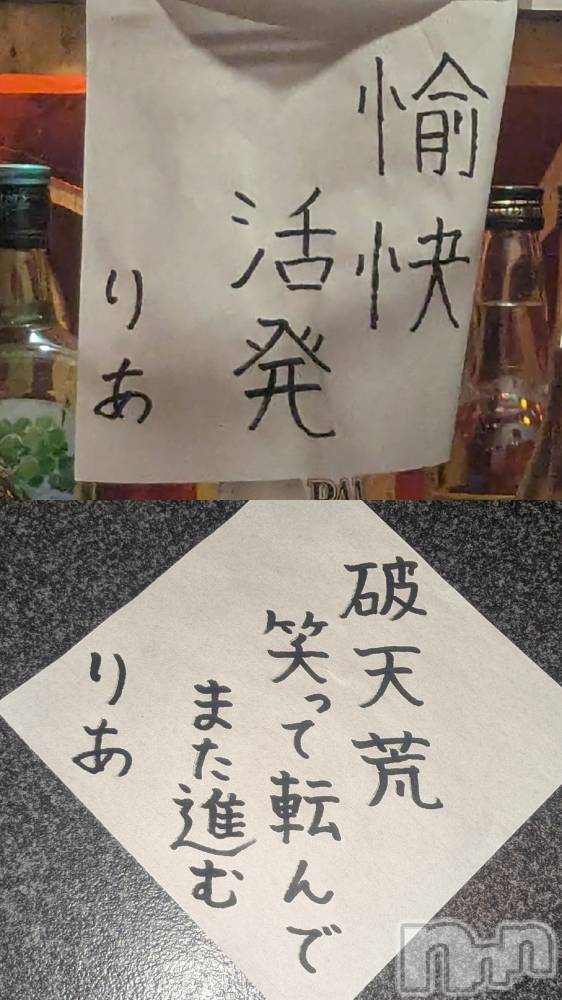 愉快
活発
りあ
破天荒
笑って転んで
また進む
りあ